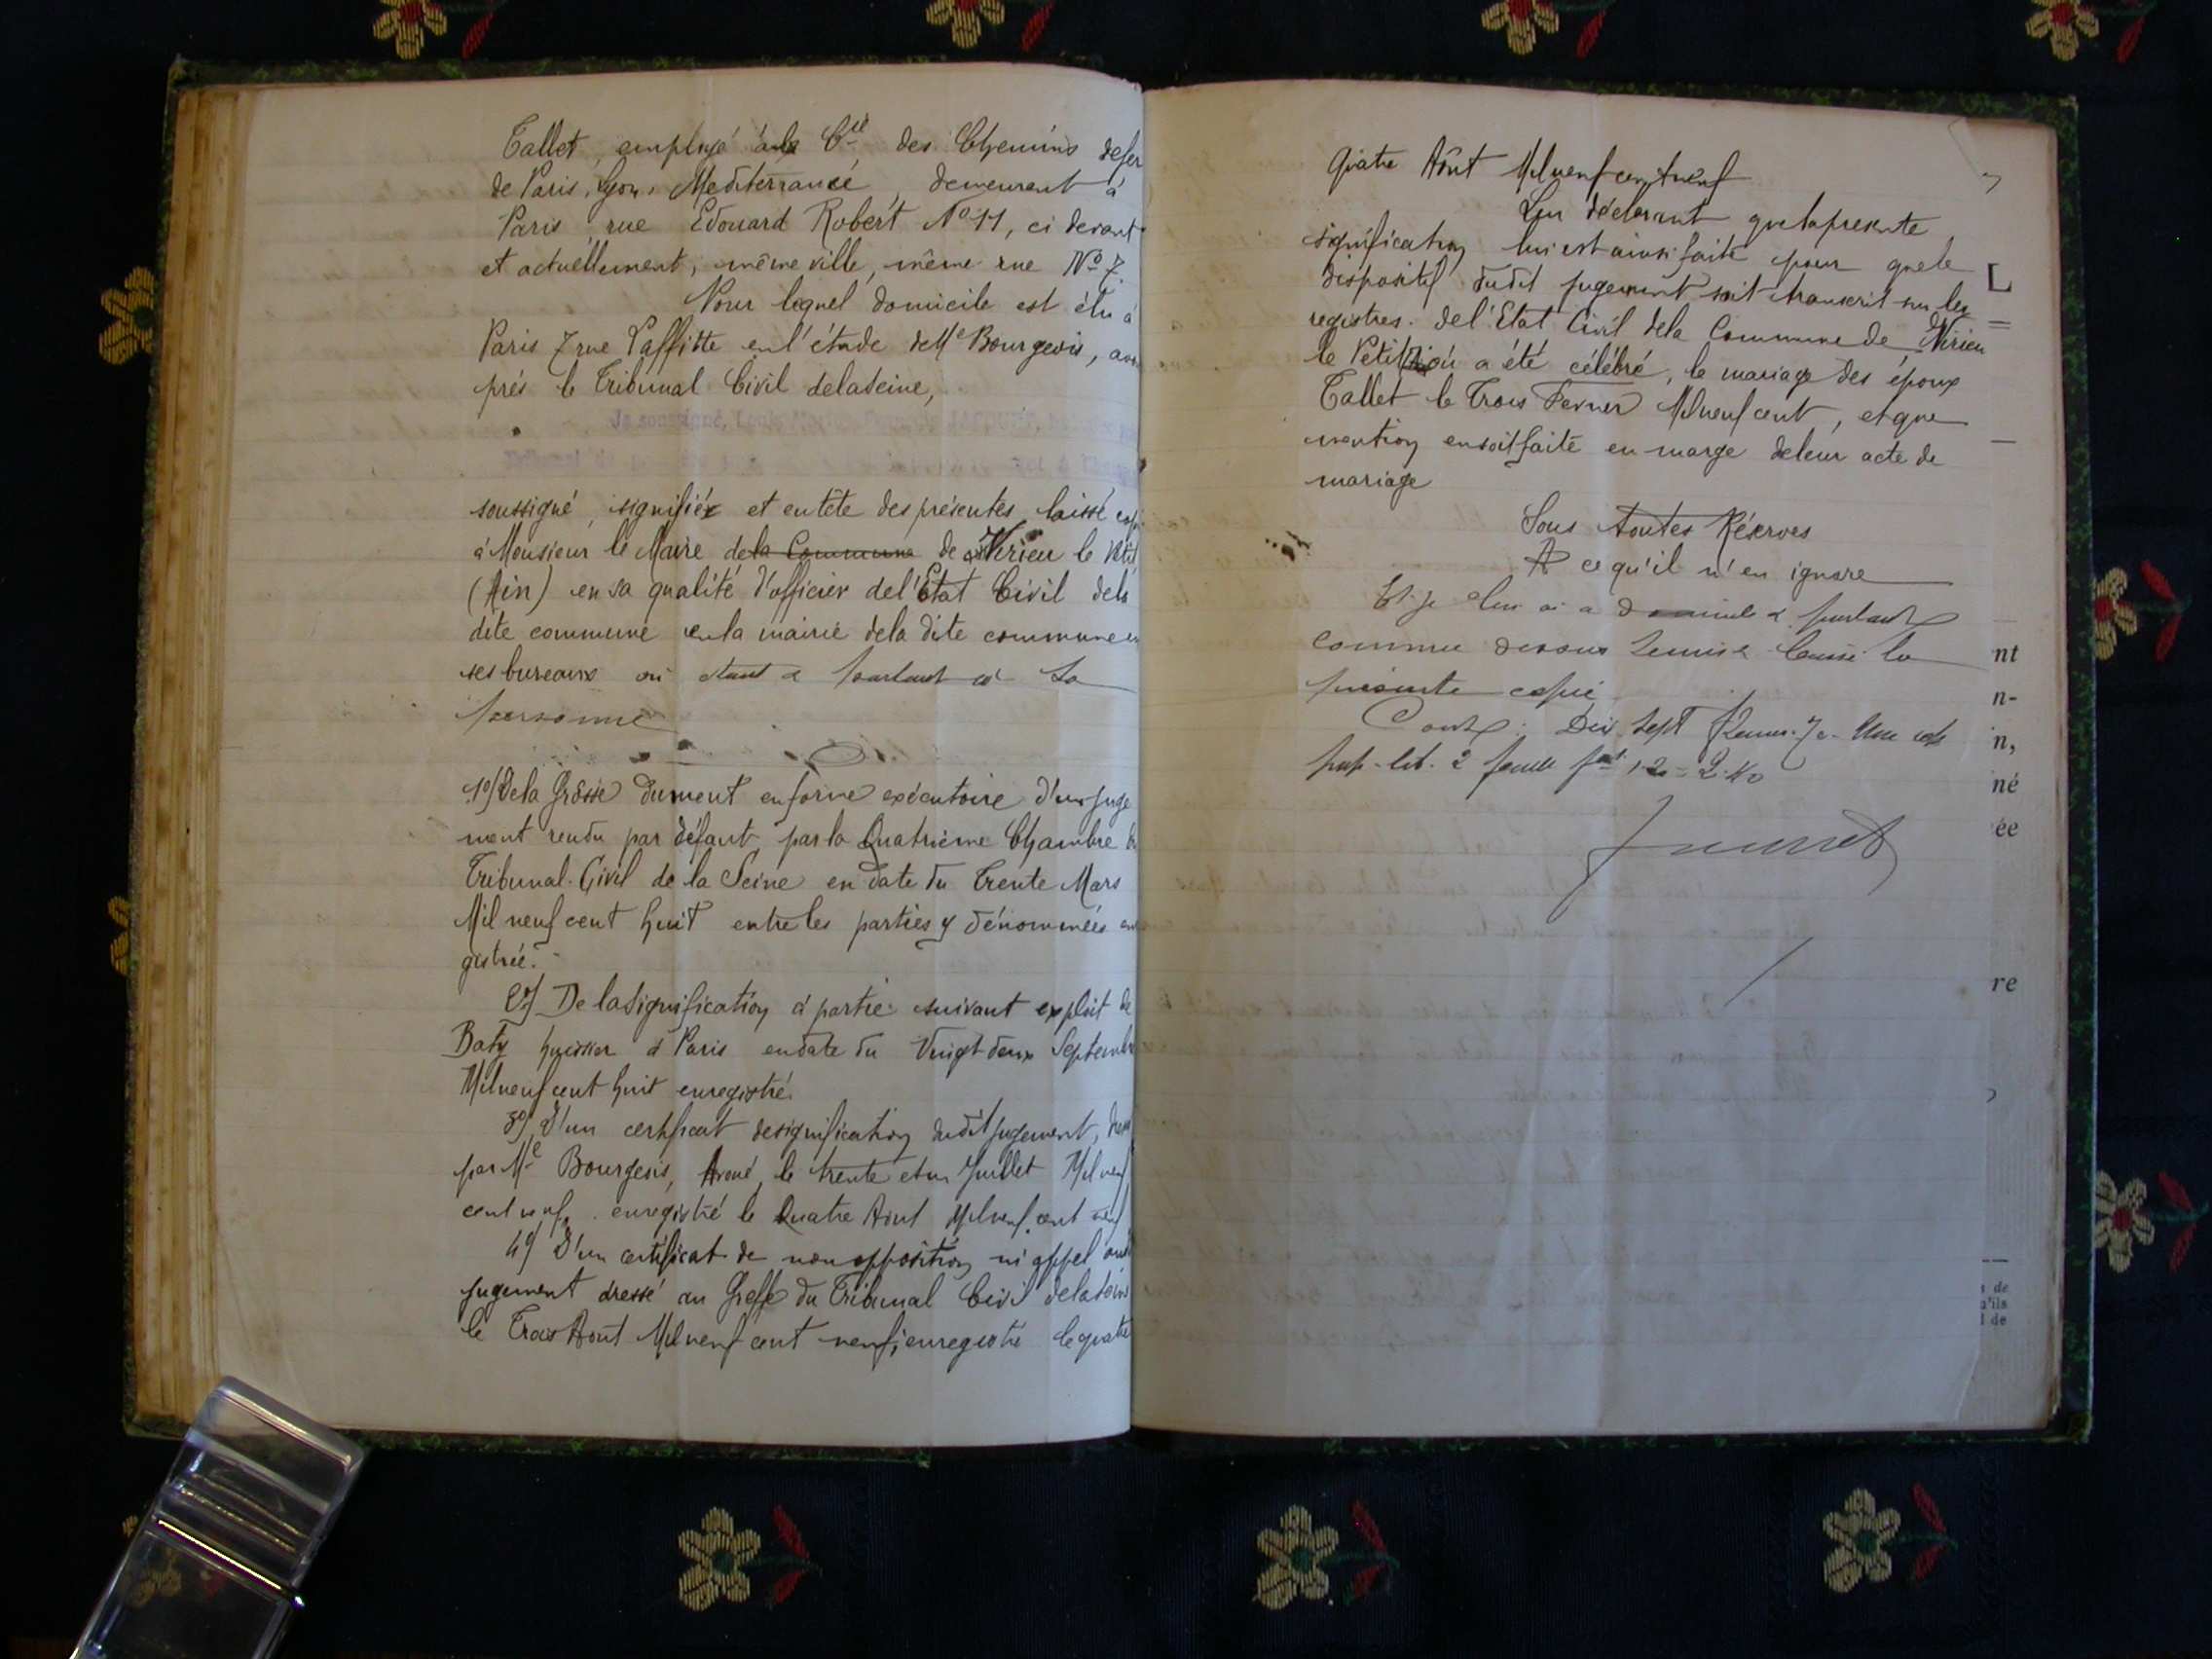 Tallet, employé à la Cie des Chemins defer
de Paris, Lyon, Mediterranée, demeurant à
Paris rue Edouard Robert No 11, ci devant
et actuellement, même ville, même rue No 7.
Pour lequel domicile est élu à
Paris 7 rue Laffitte en l'étude de Me Bourgeois, avo
prés le Tribunal Civil delaSeine,
Je soussigné,
soussigné, signifiée et entête des présentes laissé copi
à Monsieur le Maire de la Commune de Virieu le Petit
(Ain) en sa qualité d'officier del'Etat Civil dela
dite commune en la mairie dela dite commune en
ses bureaux où étant & parlant à sa
personne
1o/ Dela Grosse dument enforme exécutoire d'un juge
ment rendu par défaut par la Quatrième Chambre du
Tribunal Civil de la Seine en date du Trente Mars
Mil neuf cent huit entre les parties y dénommées en
gistrée.
2o/ De lasignification à partie suivant exploit de
Baty huissier à Paris endate du Vingt deux Septembre
Milneuf cent huit enregistré.
3o/ D'un certificat designification dudit jugement,
par Me Bourgeois, Avoué, le trente et un Juillet Mil neuf
cent neuf enregistré le Quatre Aout Milneuf cent neuf
4o/ D'un certificat de non opposition ni appel audit
jugement dressé au Greffe du Tribunal Civil delaSeine
le Trois Aout Milneuf cent neuf, enregistré le quatre
Quatre Aôut Milneuf cent neuf
Lui déclarant quelapresente
signification lui est ainsi faite pour quele
dispositif dudit jugement soit transcrit sur les
registres de l'Etat Civil dela Commune de Virieu
le Petit où a été célébré, le mariage des époux
Tallet le Trois Fevrier Milneuf cent, et que
mention en soit faite en marge deleur acte de
mariage
Sous toutes Réserves
A ce qu'il n'en ignore
Et je lui ai a domicile & parlant
comme dessus remis & laissé la
présente copie
Cout: Dix sept francs
2 feuille 1.20 = 2.40
L
nt
n-
n,
né
ée
re
de
u'ils
l de